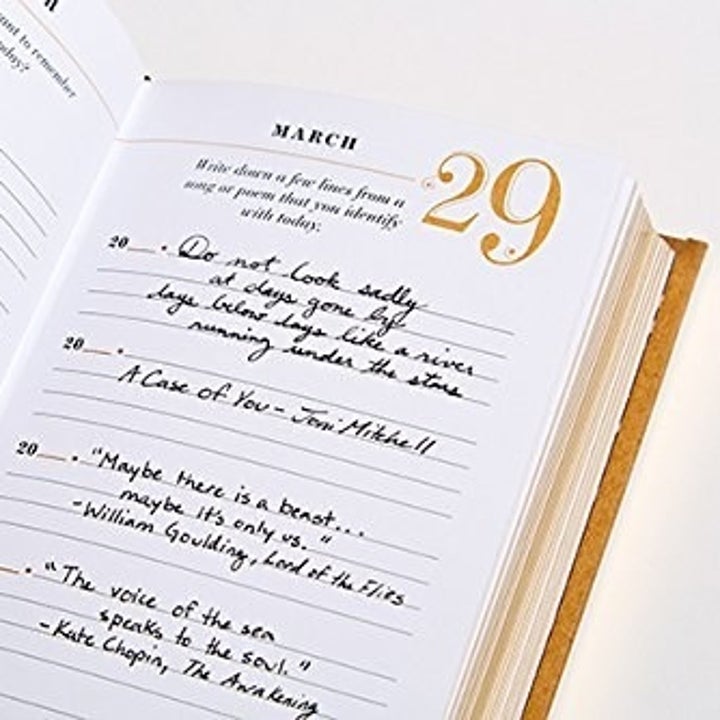 H
ant to remember
today?
MARCH
29
Write down a few lines from a
song or poem that you identify
with today:
20__. Do not look sadly
at days gone by
days below days like a river
running under the stars
20__.
A Case of You - Joni Mitchell
20__. "Maybe there is a beast...
maybe it's only us."
-William Goulding, Lord of the Flies
. "The voice of the sea
speaks to the soul."
-Kate Chopin, The Awakening